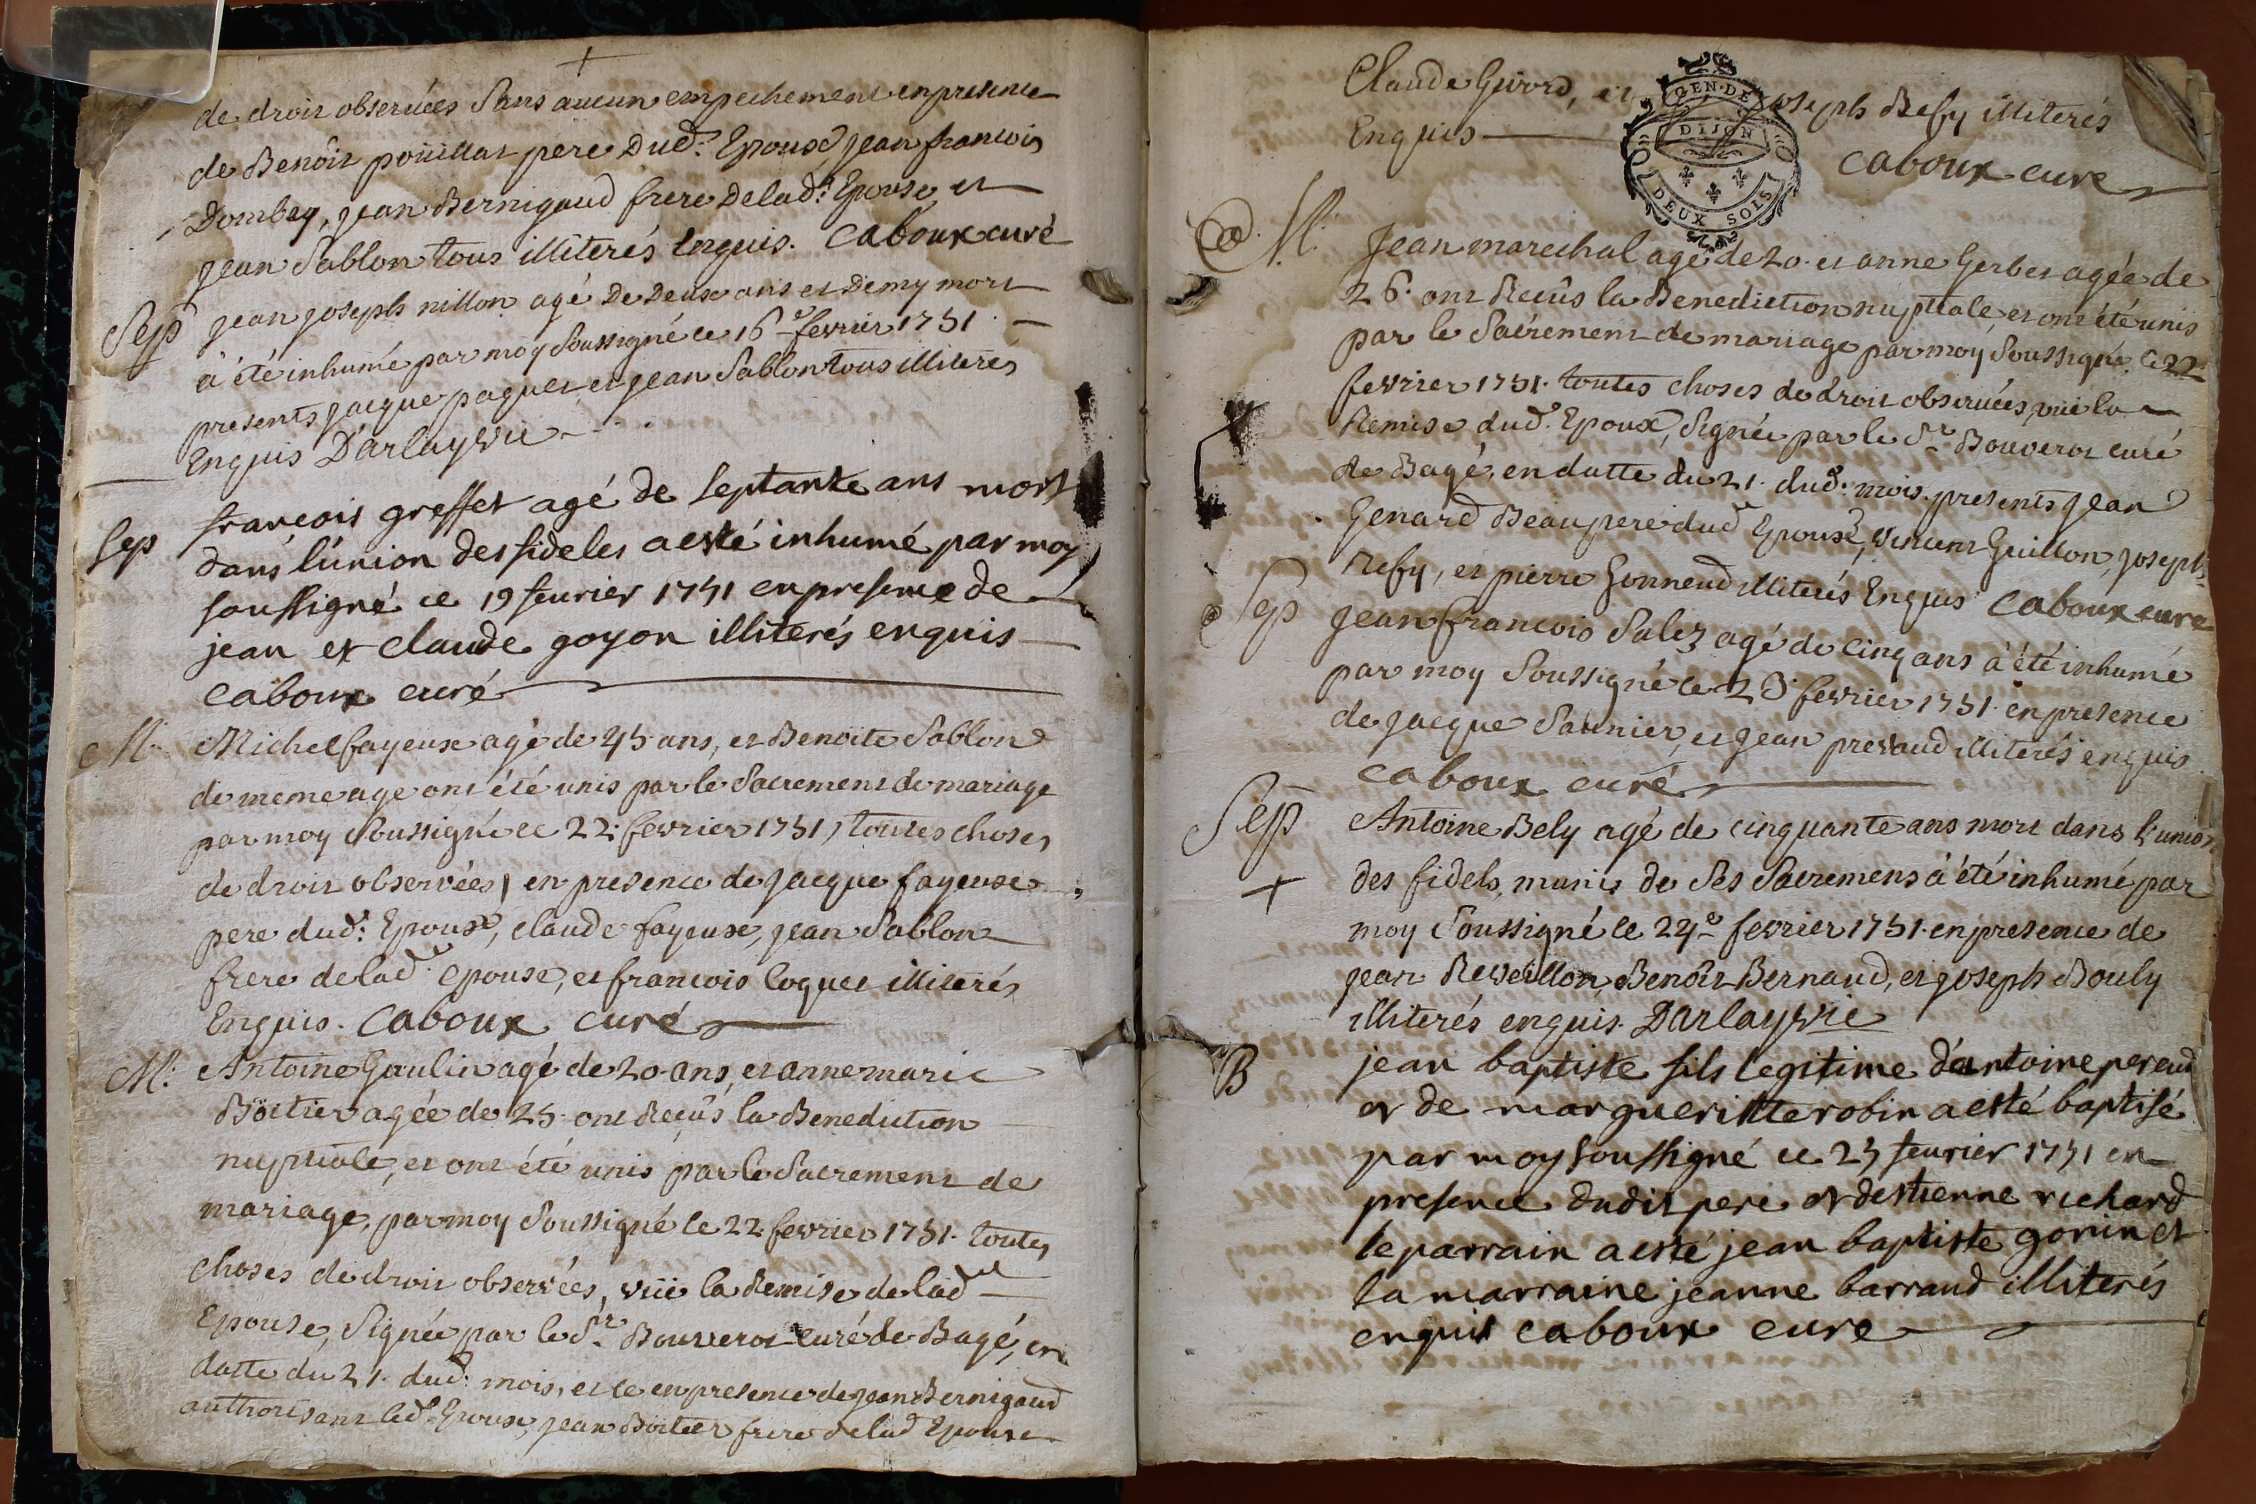 de droit observées sans aucun empechement en presence
de Benôit poüillat pere dud.t Epoux, jean francois
Dombey, jean Bernigaud frere de lad.e Epouse, et
jean Sablon tous illiterés Enquis. Caboux curé
Sep jean joseph nillon agé de deux ans et demy mort
à été inhumé par moy soussigné ce 16e fevrier 1751.
presents jacque paquet et jean Sablon tous illiterés
Enquis Darlay vic
Sep francois greffet agé de septante ans mort
dans l'union des fideles a esté inhumé par moy
soussigné ce 19 feurier 1751 en presence de
jean et claude goyon illiterés enquis
caboux curé
M. Michel fayeux agé de 45 ans, et Benoite Sablon
de meme age ont été unis par le Sacrement de mariage
par moy soussigné ce 22. fevrier 1751, toutes choses
de droit observées, en presence de jacque fayeuse
pere dud.t Epoux, claude fayeuse, jean Sablon
frere de lad.e epouse, et francois loquet illiterés
Enquis. Caboux curé
M. Antoine Gaulin agé de 20 ans, et anne marie
Böitier agée de 25. ont Reçûs la Benediction
nuptiale, et ont été unis par le Sacrement de
mariage, par moy soussigné le 22. fevrier 1751. toutes
choses de droit observées, vüe la Remise de lad.e
Epouse, signée par le Sr. Bouverot curé de Bagé, en
datte du 21. dud. mois, et ce en presence de jean Bernigaud
authorisant led.t Epoux, jean Boitier frere de lad Epouse
Claude Givord, et joseph Refy illiterés
Enquis
caboux cure
GEN. DE
DIJON
DEUX SOLS
M. Jean marechal agé de 20. et anne Gerbet agée de
26. ont Recûs la Benediction nuptiale, et ont été unis
par le Sacrement de mariage par moy soussigné, ce 22
fevrier 1751. toutes choses de droit observées, vüe la
Remise dud.t Epoux, signée par le Sr. Bouverot curé
de Bagé, en datte du 21. dud. mois. presents jean
Genard Beaupere dud.t Epoux, vincent Guillon, joseph
Refy, et pierre Gonnend illiterés Enquis Caboux cure
Sep Jean francois Salez agé de cinq ans à été inhumé
par moy soussigné ce 23. fevrier 1751. en presence
de jacque Saunier, et jean prevaud illiterés enquis
Caboux curé
Sep Antoine Bely agé de cinquante ans mort dans l'union
des fidels, munis de Ses Sacremens à été inhumé par
moy soussigné le 24e fevrier 1751. en presence de
jean Reveillon, Benôit Bernaud, et joseph Bouly
illiterés enquis. Darlay vic
B jean baptiste fils legitime d'antoine peraud
et de marguerittte robin a esté baptisé
par moy soussigné ce 25 feurier 1751 en
presence dudit pere et destienne richard
le parrain a esté jean baptiste gonin et
la marraine jeanne barraud illiterés
enquis caboux cure